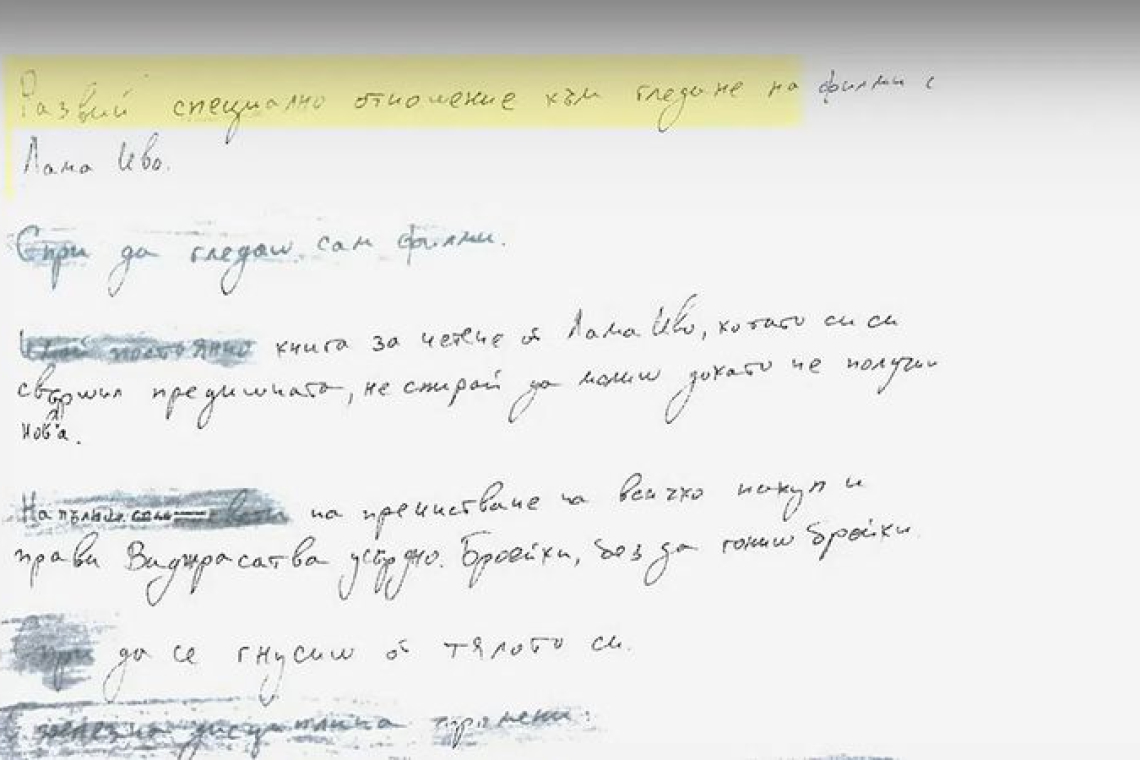 Развий специално отношение към гледане на филми с
Лама Иво.
Спри да гледаш сам филми.
Имай постоянно книга за четене от Лама Иво, когато си си
свършил предишната, не спирай да молиш докато не получиш
нова.
на пречистване на всичко накуп и
прави Ваджрасатва усърдно. Бройки, без да гониш бройки.
да се гнусиш от тялото си.
желязна дисциплина